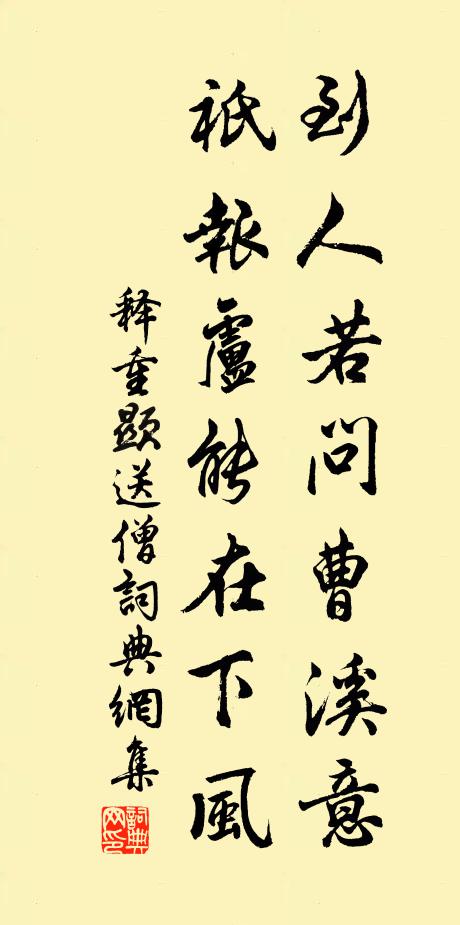 到人若問曹溪意
祇報盧能在下風
释重顯送僧詞典網集
詞典网印